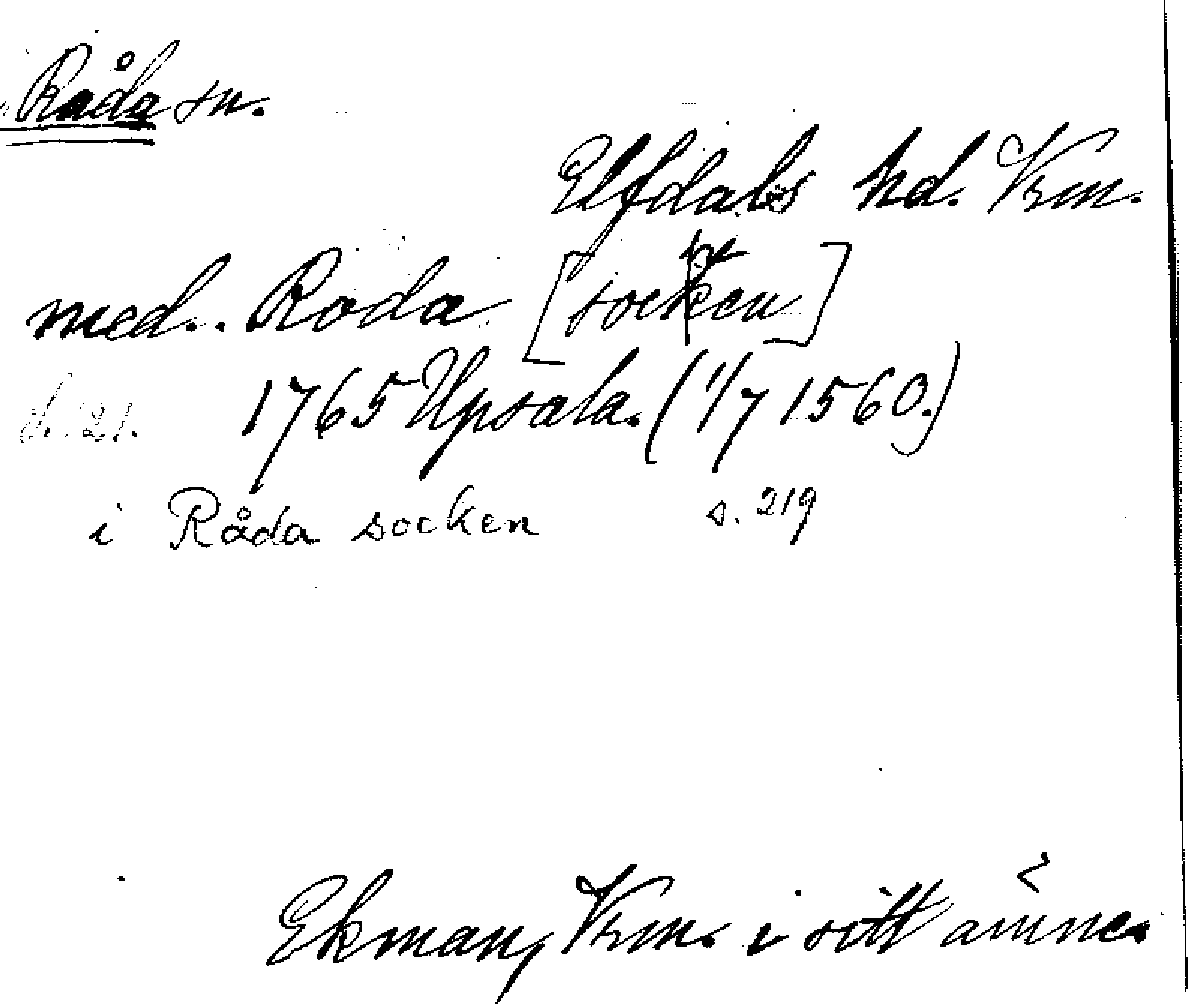 Råda sn.
Elfdals hd. Vrm.
med. Roda [socken]
1765 Upsala. (1/7 1560.)
i Råda socken s. 219
Ekman, Vrm. i sitt ämne.